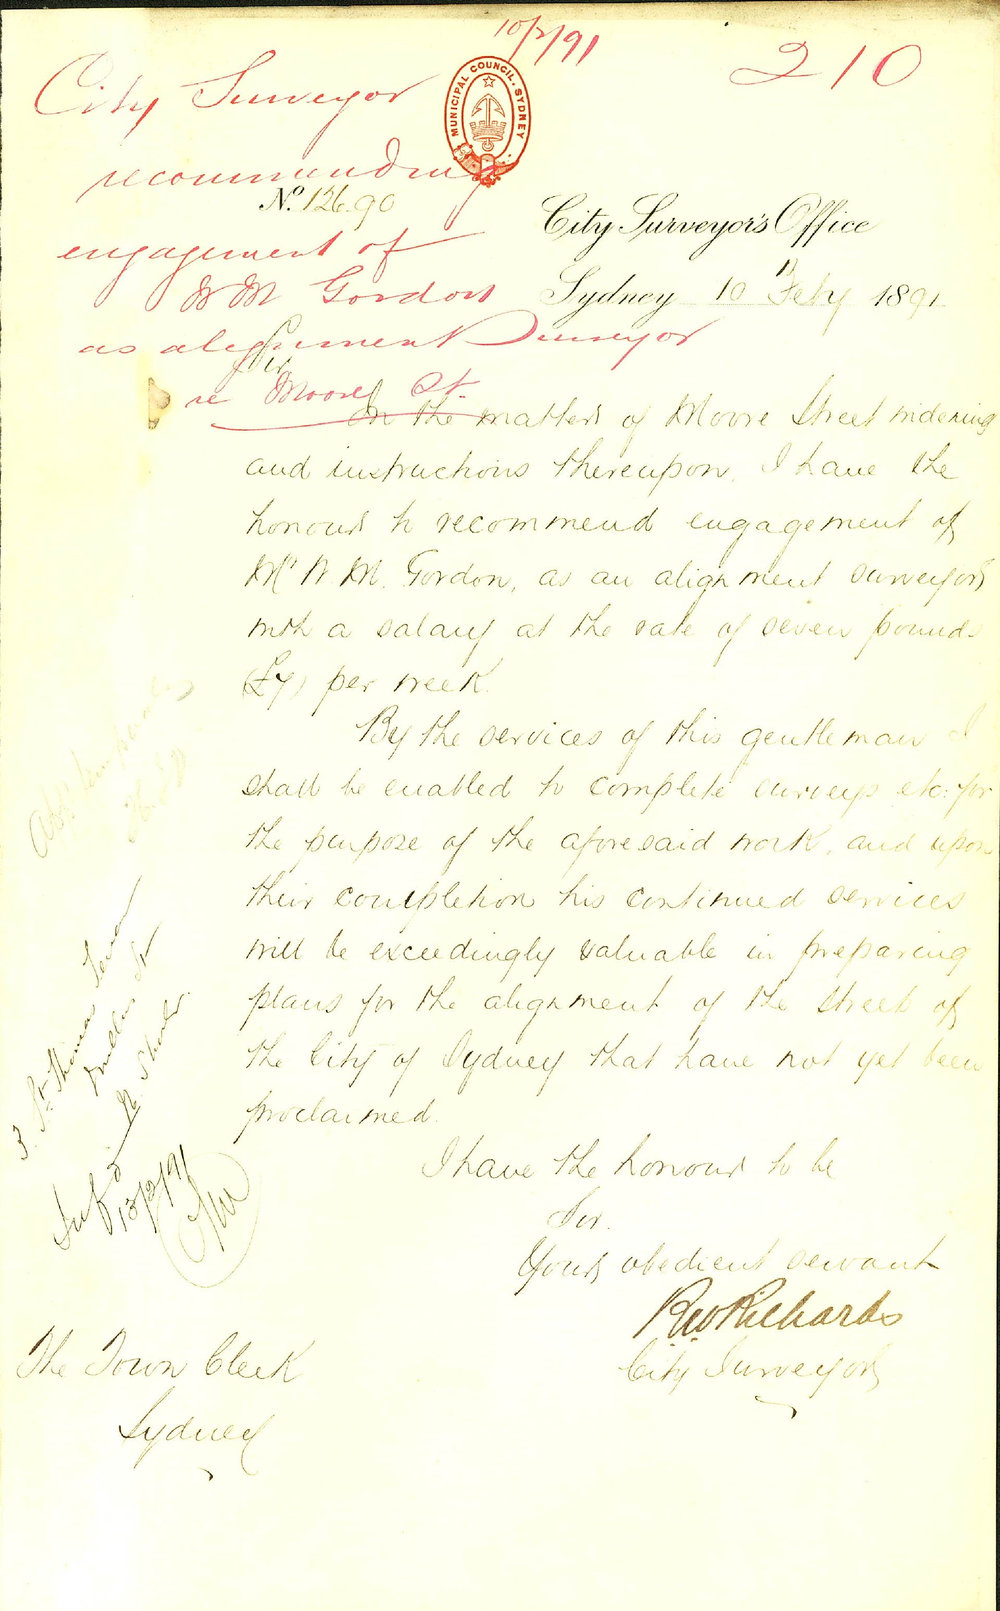 10/2/91
210
City Surveyor
recommending
engagement of
W M Gordon
as alignment Surveyor
re Moore St.
MUNICIPAL COUNCIL. SYDNEY
No. 126.90
City Surveyor's Office
Sydney 10 Feby 1891
Sir
In the matter of Moore Street widening
and instructions thereupon, I have the
honour to recommend engagement of
Mr W. M. Gordon, as an alignment surveyor
with a salary at the rate of seven pounds
(£7) per week.
By the services of this gentleman I
shall be enabled to complete surveys etc: for
the purpose of the aforesaid work, and upon
their completion his continued services
will be exceedingly valuable in preparing
plans for the alignment of the streets of
the City of Sydney that have not yet been
proclaimed.
I have the honour to be
Sir.
Your obedient servant
RWRichards
City Surveyor
The Town Clerk
Sydney
3 St Thomas Terrace
St
13/2/91